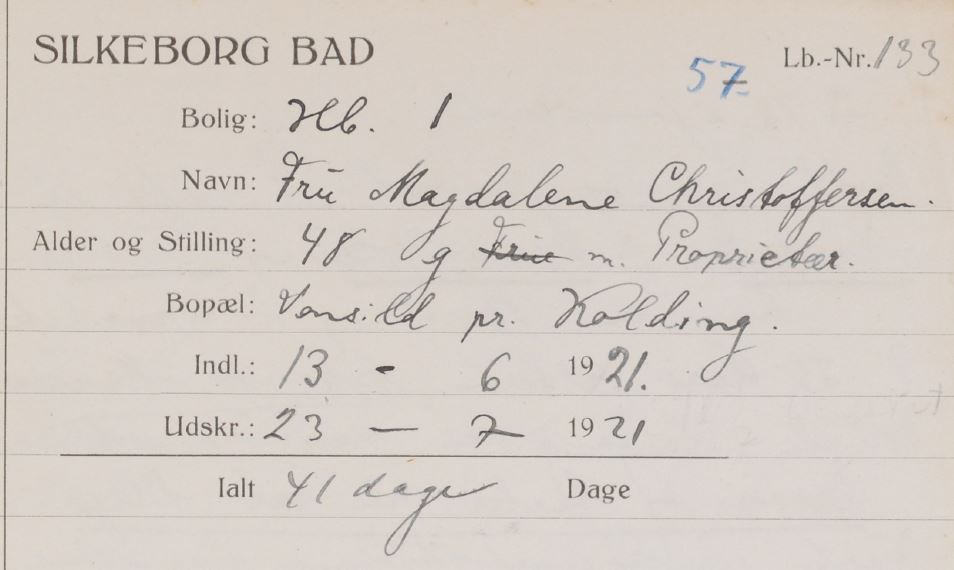 SILKEBORG BAD Lb.-Nr. 133
57
Bolig: Hb. 1
Navn: Fru Magdalene Christoffersen.
Alder og Stilling: 48 g Frue m. Proprietær.
Bopæl: Vonsild pr. Kolding.
Indl.: 13 - 6 1921.
Udskr.: 23 — 7 1921
Ialt 41 dage Dage